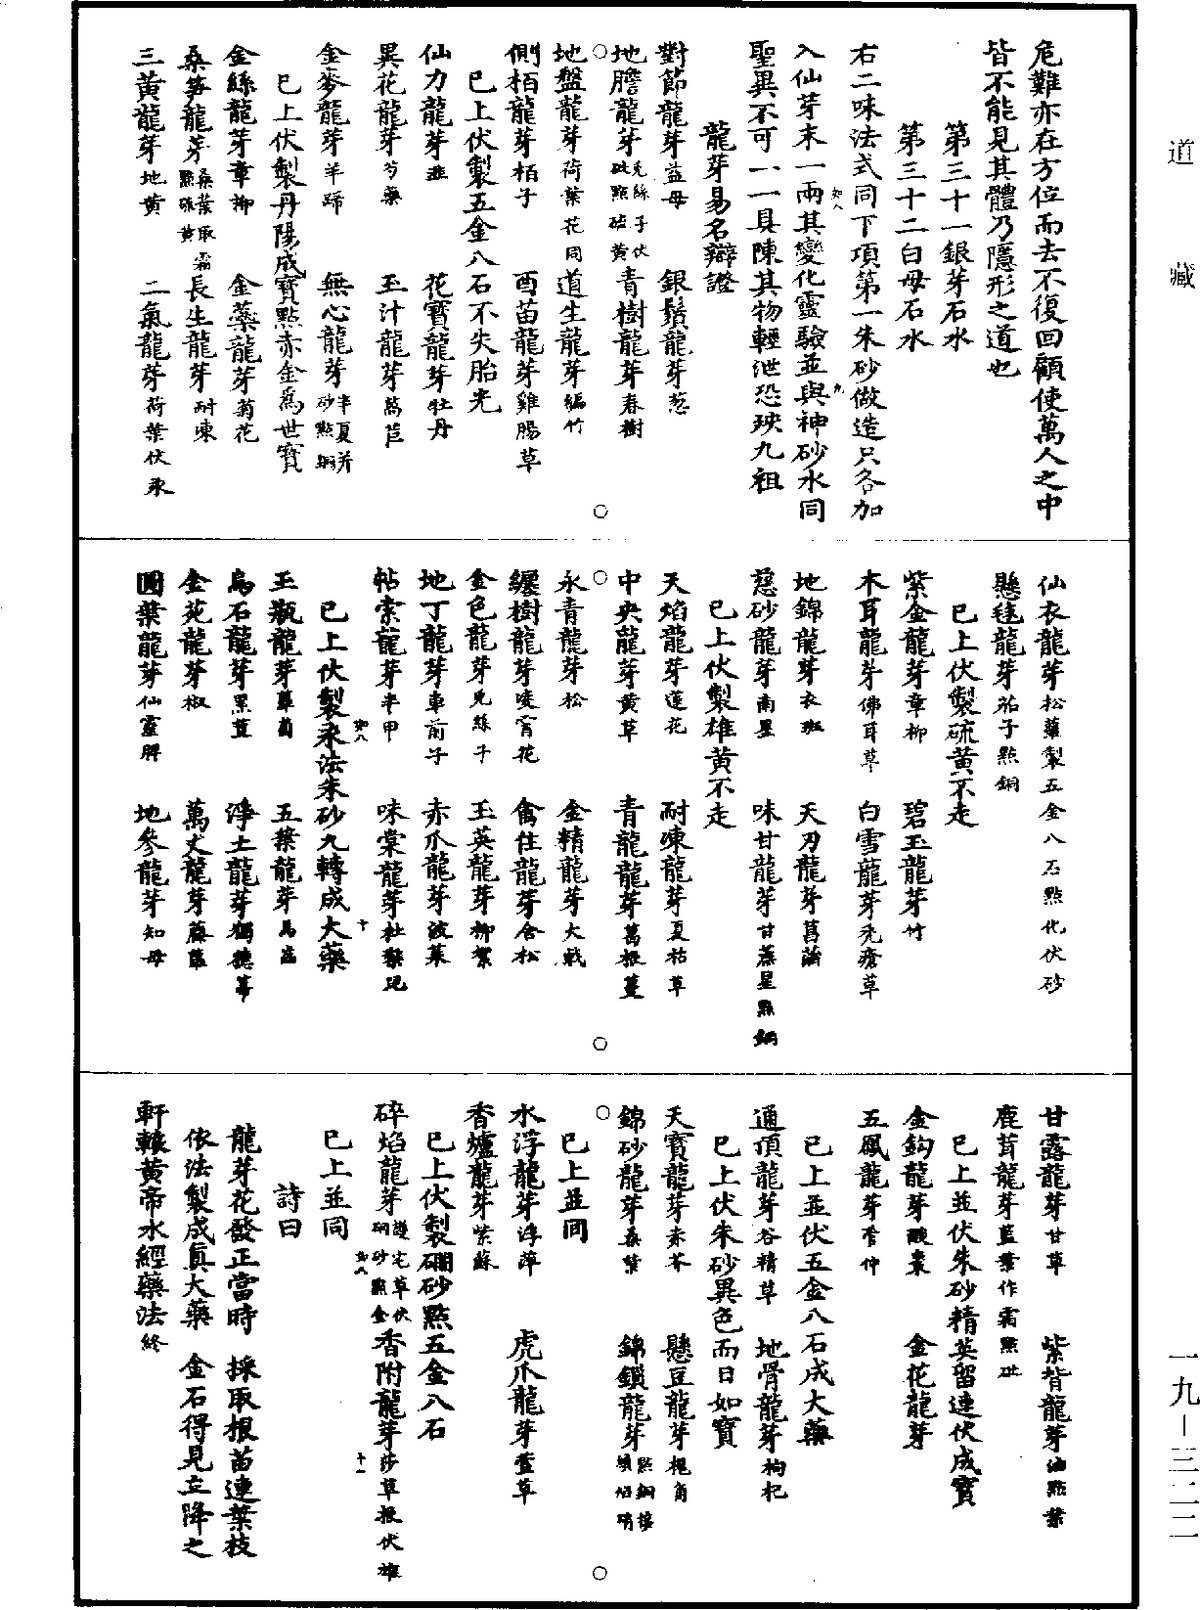 道藏
危難亦在方位而去不復回顧使萬人之中
皆不能見其體乃隱形之道也
第三十一銀芽石水
第三十二白母石水
右二味法式同下項第一朱砂做造只各加
入仙芽末一兩其變化靈驗並與神砂水同
聖異不可一一具陳其物輕泄恐殃九祖
龍芽易名辯證
對節龍芽益母 銀鬚龍芽葱
地膽龍芽兔絲子伏砒點硫黃 青樹龍芽春樹
地盤龍芽荷葉花同 道生龍芽萹竹
側栢龍芽栢子 酉苗龍芽雞腸草
已上伏製五金八石不失胎光
仙力龍芽韭 花寶龍芽牡丹
異花龍芽芍藥 玉汁龍芽萵苣
金麥龍芽羊蹄 無心龍芽半夏芥砂點銅
已上伏製丹陽成寶點赤金爲世寶
金絲龍芽章柳 金蘂龍芽菊花
桑笋龍芽桑葉取霜點硃黃 長生龍芽耐凍
三黃龍芽地黃 二氣龍芽荷葉伏汞
仙衣龍芽松蘿製五金八石點化伏砂
懸毬龍芽茄子點銅
已上伏製硫黃不走
紫金龍芽章柳 碧玉龍芽竹
木耳龍芽佛耳草 白雪龍芽禿瘡草
地錦龍芽衣班 天刃龍芽菖蒲
慈砂龍芽南星 味甘龍芽甘蔗星點銅
已上伏製雄黃不走
天焰龍芽蓮花 耐凍龍芽夏枯草
中央龍芽黃草 青龍龍芽葛根蔓
永青龍芽松 金精龍芽大戟
纏樹龍芽凌霄花 禽住龍芽含松
金色龍芽兔絲子 玉英龍芽柳絮
地丁龍芽車前子 赤爪龍芽波菜
帖索龍芽半甲 味棠龍芽杜梨現
已上伏製汞法朱砂九轉成大藥
玉瓶龍芽蘿蔔 五葉龍芽馬齒
烏石龍芽黑豆 淨土龍芽獨掃菷
金花龍芽椒 萬丈龍芽藤蘿
圓葉龍芽仙靈脾 地參龍芽知母
甘露龍芽甘草 紫背龍芽油點葉
鹿茸龍芽藍葉作霜點砒
已上並伏朱砂精英留連伏成寶
金鈎龍芽酸棗 金花龍芽
五鳳龍芽管仲
已上並伏五金八石成大藥
通頂龍芽谷精草 地骨龍芽枸杞
已上伏朱砂異色而日如寶
天寶龍芽赤芥 懸豆龍芽槐角
錦砂龍芽桑葉 錦鎖龍芽
已上並同
水浮龍芽浮萍 虎爪龍芽萱草
香爐龍芽紫蘇
已上伏製硇砂點五金八石
碎焰龍芽護宅草伏硇砂點金 香附龍芽莎草根伏雄
已上並同
詩曰
龍芽花發正當時 採取根苗連葉枝
依法製成真大藥 金石得見立降之
軒轅黃帝水經藥法終
一九一三二二